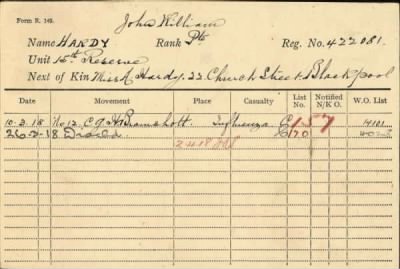 Form R. 149.
John William
Name HARDY Rank Pte Reg. No. 422081.
Unit 15th Reserve
Next of Kin Miss A Hardy, 22 Church Street, Blackpool
Date Movement Place Casualty List No. Notified N/K O. W.O. List
10-2-18 No 12 C.G.H. Bramshott Influenza C 157 4101
26-2-18 Disch C170